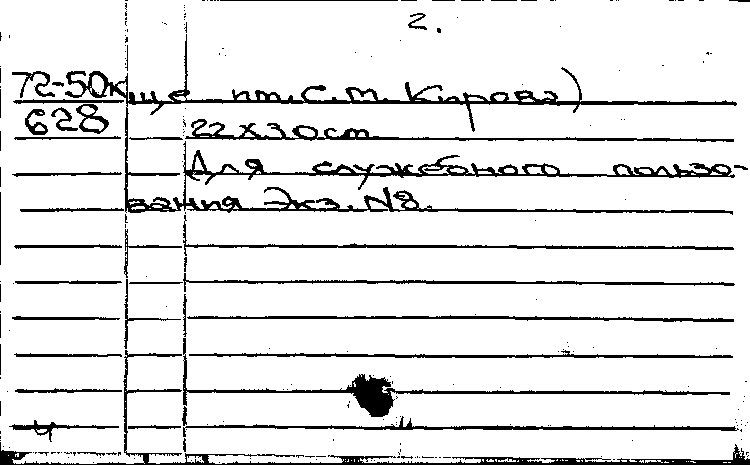 2.
72-50к ще им. С. М. Кирова)
628 22x30cm.
Для служебного пользо-
вания Экз. N8.
4